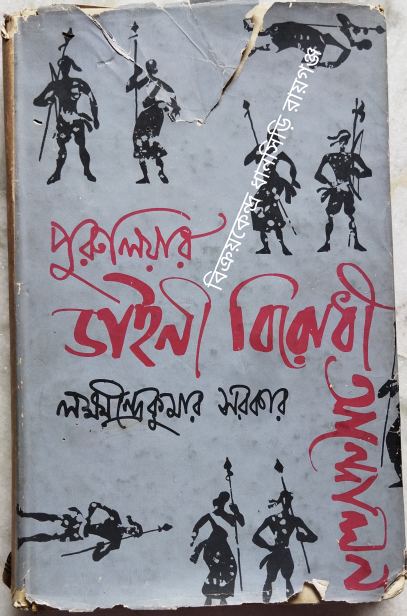 পুরুলিয়ার
ডাইনী বিরোধী
আন্দোলন
লক্ষ্মীন্দ্রকুমার সরকার
বিক্রয়কেন্দ্র ধানসিড়ি রায়গঞ্জ